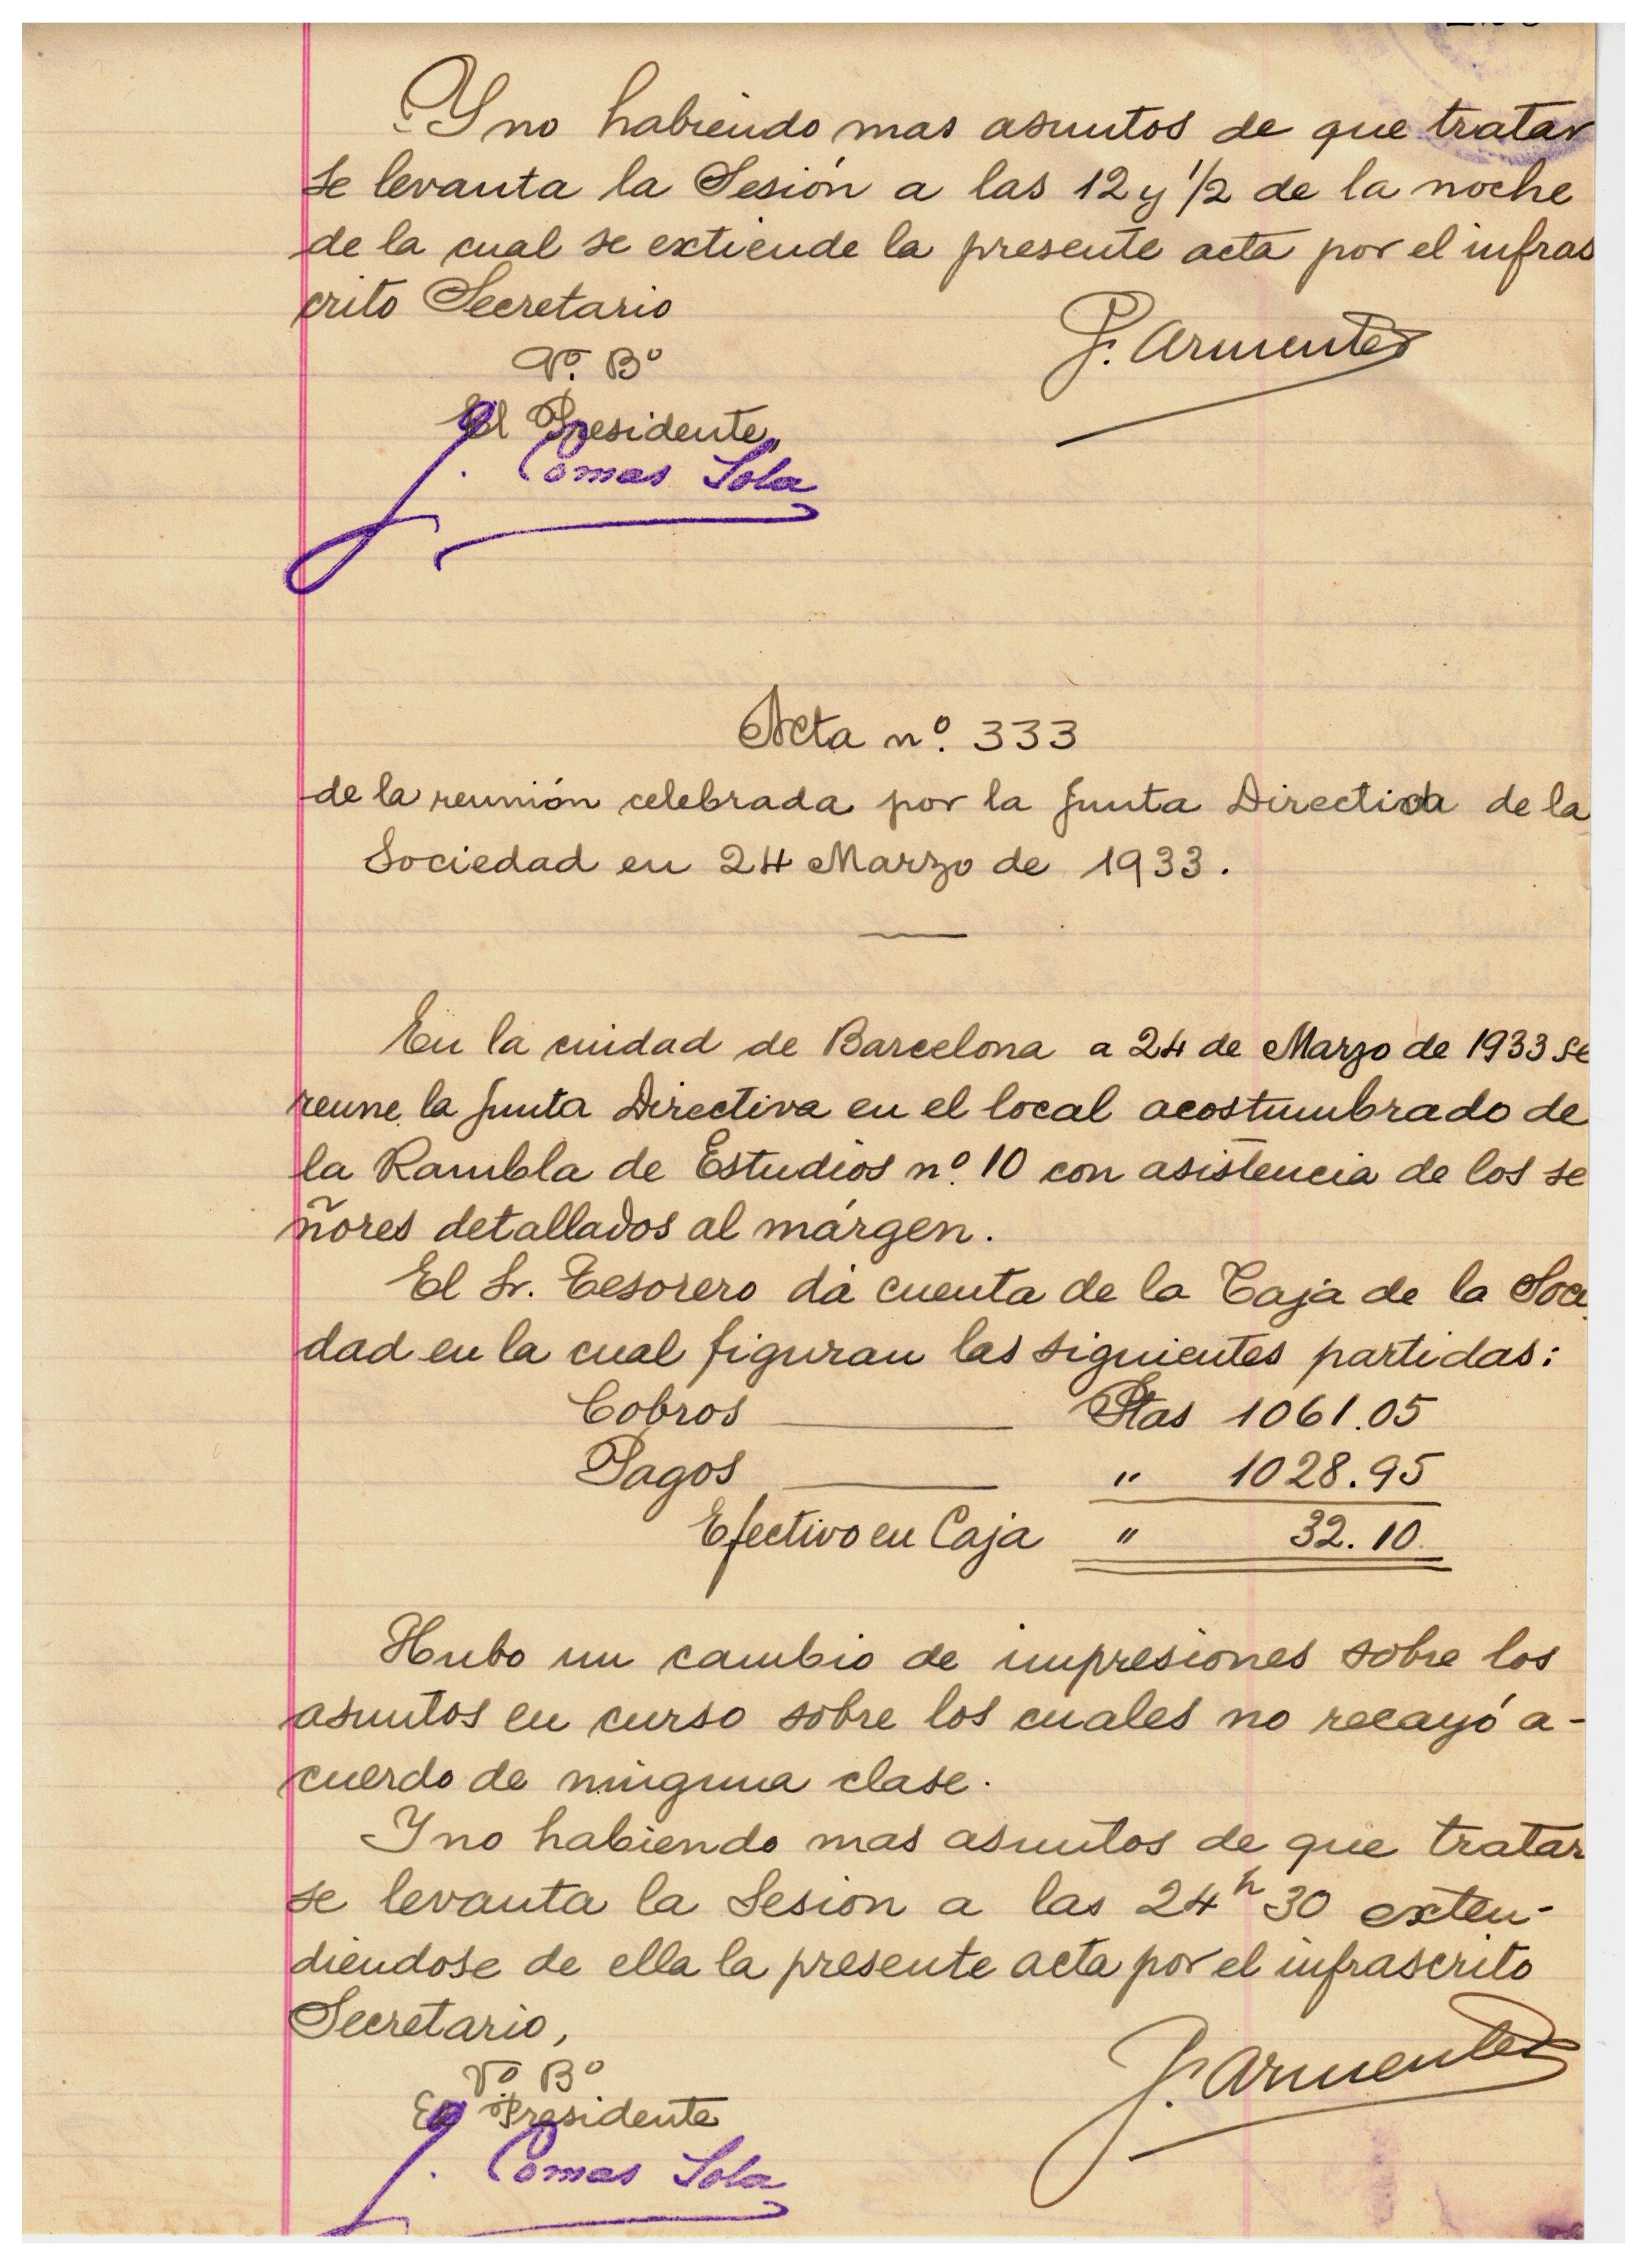 Y no habiendo mas asuntos de que tratar
se levanta la Sesión a las 12 y 1/2 de la noche
de la cual se extiende la presente acta por el infras
crito Secretario
P. Armenter
Vº. Bº
El Presidente,
J. Comas Solà
Acta nº. 333
de la reunión celebrada por la Junta Directiva de la
Sociedad en 24 Marzo de 1933.
En la ciudad de Barcelona a 24 de Marzo de 1933 se
reune la Junta Directiva en el local acostumbrado de
la Rambla de Estudios nº. 10 con asistencia de los se
ñores detallados al márgen.
El Sr. Tesorero dá cuenta de la Caja de la Socie
dad en la cual figuran las siguientes partidas:
Cobros ——— Ptas 1061.05
Pagos ——— " 1028.95
Efectivo en Caja " 32.10
Hubo un cambio de impresiones sobre los
asuntos en curso sobre los cuales no recayó a-
cuerdo de ninguna clase.
Y no habiendo mas asuntos de que tratar
se levanta la Sesion a las 24h 30 exten-
diendose de ella la presente acta por el infrascrito
Secretario,
P. Armenter
Vº Bº
El Presidente
J. Comas Solà